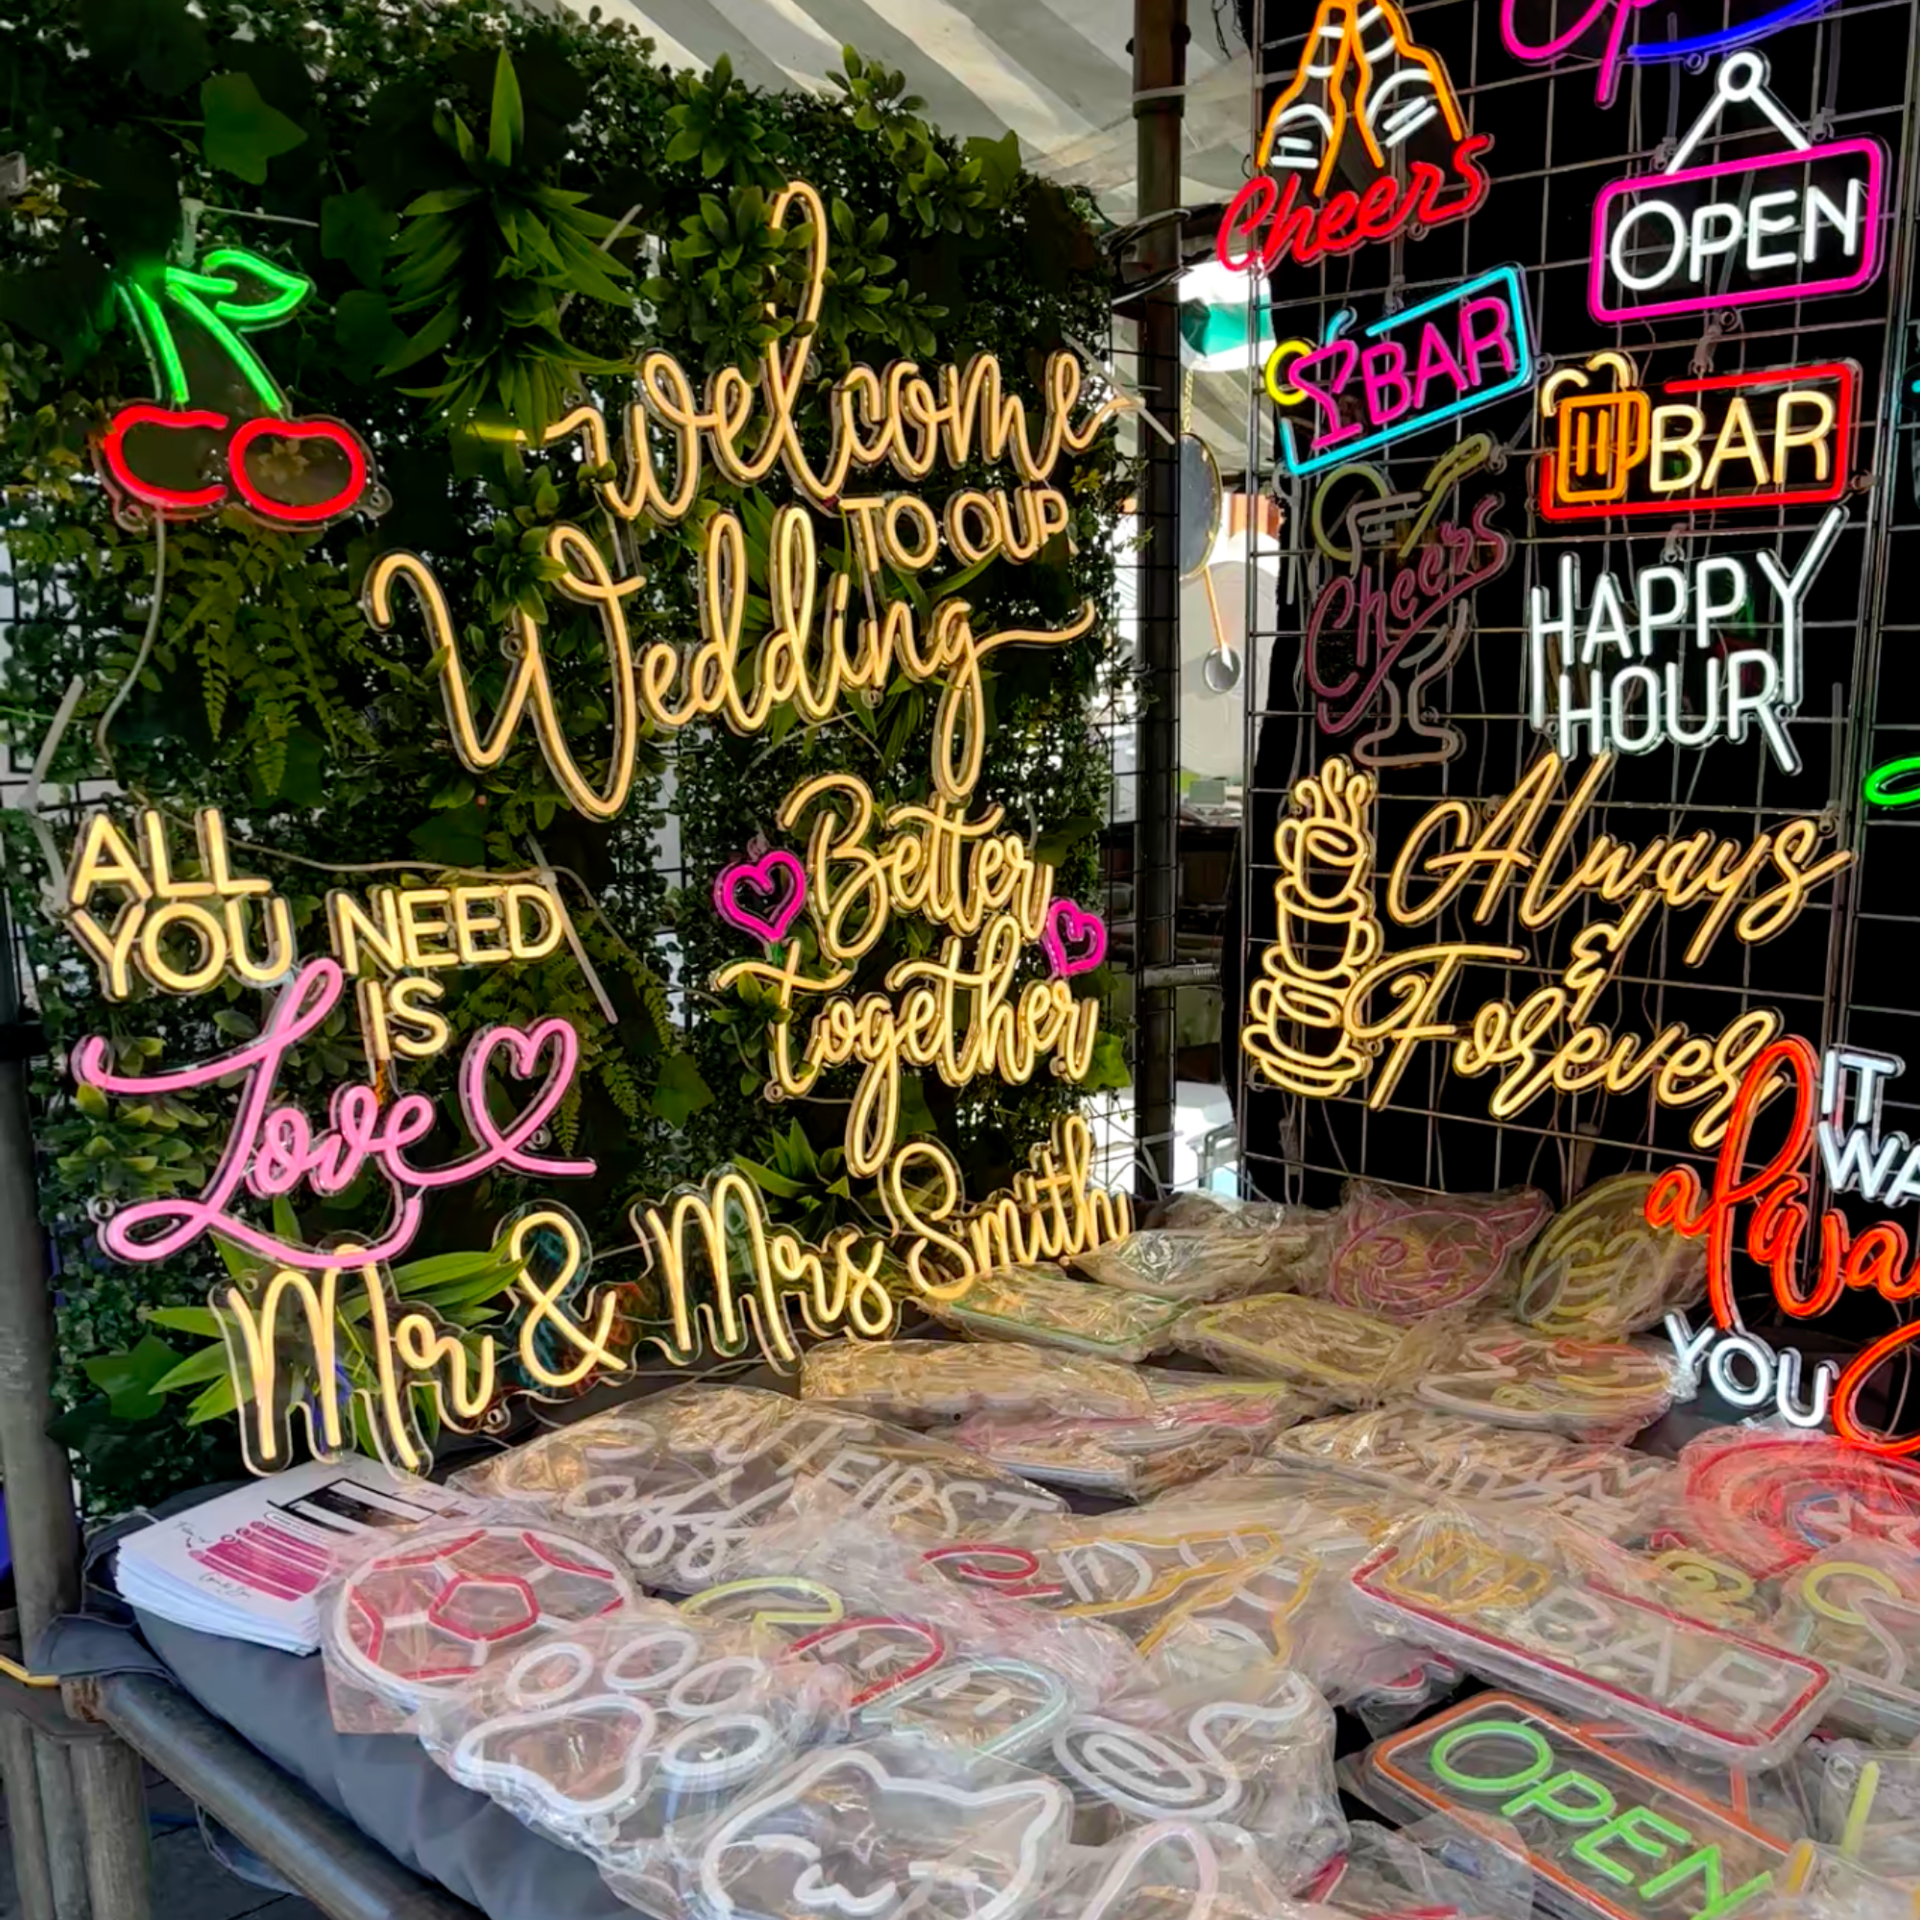 Welcome
TO OUR
Wedding
ALL
YOU NEED
IS
Love
Better
Together
Mr & Mrs Smith
Cheers
OPEN
BAR
BAR
Cheers
HAPPY
HOUR
Always
&
Forever
IT
YOU
BUT FIRST
BAR
OPEN